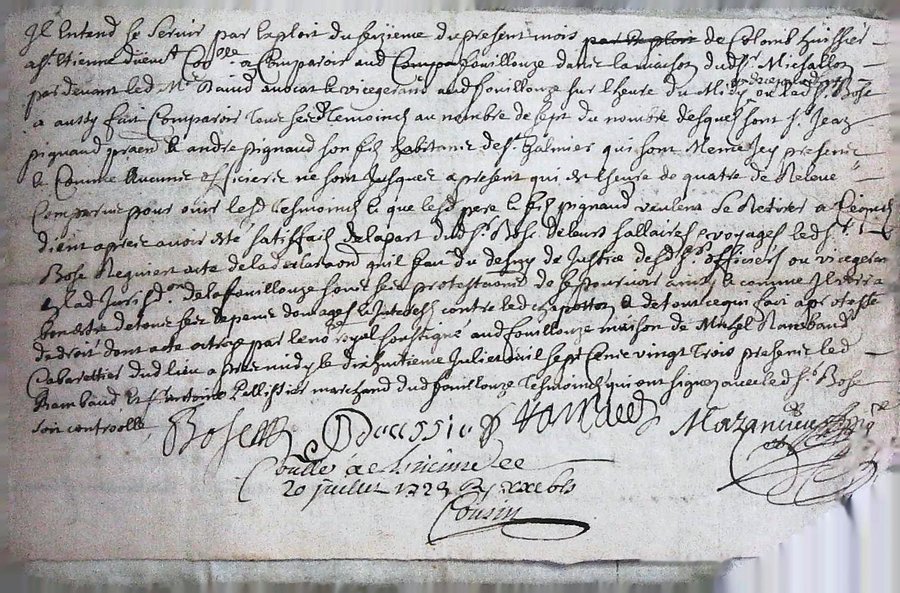 Il Entend se servir par Exploit du seizieme du present mois par Exploit de Colomb huissier
a St. Etienne düem.t Co.lle a Comparoir aud Compa fouillouze dans la maison dud Sr. Michallon
par devant led Mr. David avocat & vicegerant aud fouillouze sur l'heure du Midy ou led Sr. Bose
a aussy fait Comparoir tous sesd temoins au nombre de sept du nombre desquels sont Sr. Jean
pignaud & andre pignaud son fils habitans de St. Galmier qui sont Memes Icy presents
& Comme Aucuns officiers ne sont Jusques a present qui est l'heure de quatre de Relevé
Comparus pour ouir lesd tesmoins & que lesd pere & fils pignaud veulent se Retirer a
dient apres avoir esté satisfaits de la part dud Sr. Bose de leurs sallaires & voyages led Sr.
Bose Requiert acte de la declaraon qu'il fait du desny de Justice desd Srs. officiers ou vicegerant
en lad Jurisd.on de la fouillouze sous ses protestations de se pourvoir ainsy & comme Il verra
bon estre de tous ses depens domages & Interests contre led chapotton & de tout ce qui faut a protester
de droit dont acte octroyé par le no.re royal soussigné aud fouillouze maison de Michel Rambaud
Cabarettier dud lieu apres midy le dixhuitieme Juliet mil sept Cents vingt Trois presents led
Rambaud & Sr. Antoine Pellissier marchand dud fouillouze tesmoins qui ont signez avec led Sr. Bose
soit controollé
Bose Rambaud Mazancieu
Conllé a St. Etienne le
20 juillet 1723
Cousin